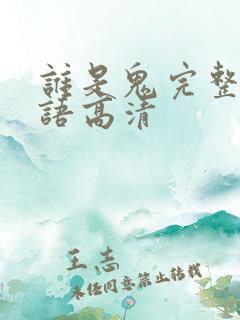 誰是鬼完整
語高清
王志
未经同意禁止转载